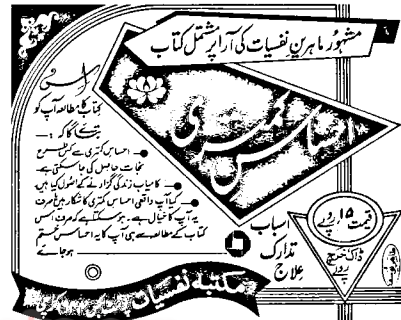 مشہور ماہرینِ نفسیات کی آرا پر مشتمل کتاب
احساسِ کمتری
اس
کتاب کا مطالعہ آپ کو
بتائے گا کہ :—
احساسِ کمتری سے کس طرح
نجات حاصل کی جا سکتی ہے۔
کامیاب زندگی گزارنے کے اصول کیا ہیں
کیا آپ واقعی احساسِ کمتری کا شکار ہیں یا صرف
یہ آپ کا خیال ہے۔ ہو سکتا ہے کہ صرف اس
کتاب کے مطالعہ سے ہی آپ کا یہ احساس ختم
ہو جائے
اسباب
تدارک
علاج
قیمت ۱۵ روپے
ڈاک خرچ
روپے
مکتبہ نفسیات پوسٹ بکس کراچی